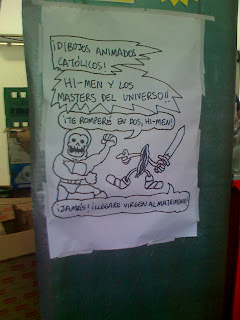 ¡DIBUJOS ANIMADOS
CATÓLICOS!
HI-MEN Y LOS
MASTERS DEL UNIVERSO!!
¡TE ROMPERÉ EN DOS, HI-MEN!
¡JAMÁS! ¡LLEGARÉ VIRGEN AL MATRIMONIO!